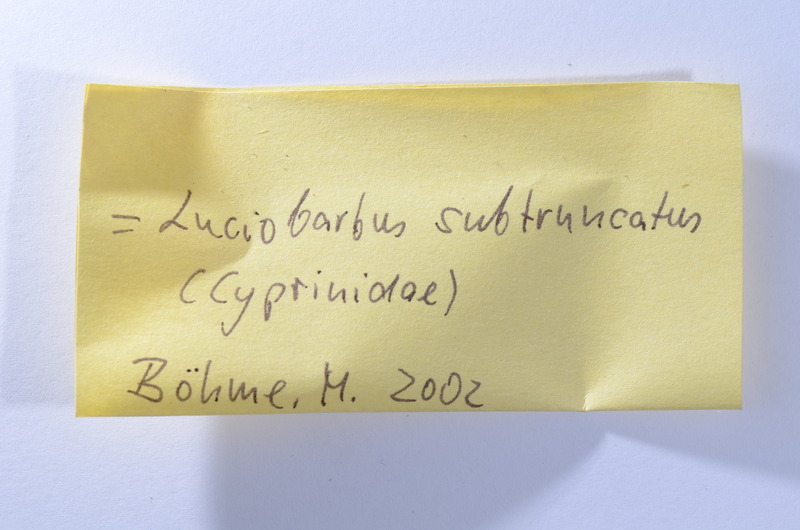 = Luciobarbus subtruncatus
(Cyprinidae)
Böhme, M. 2002